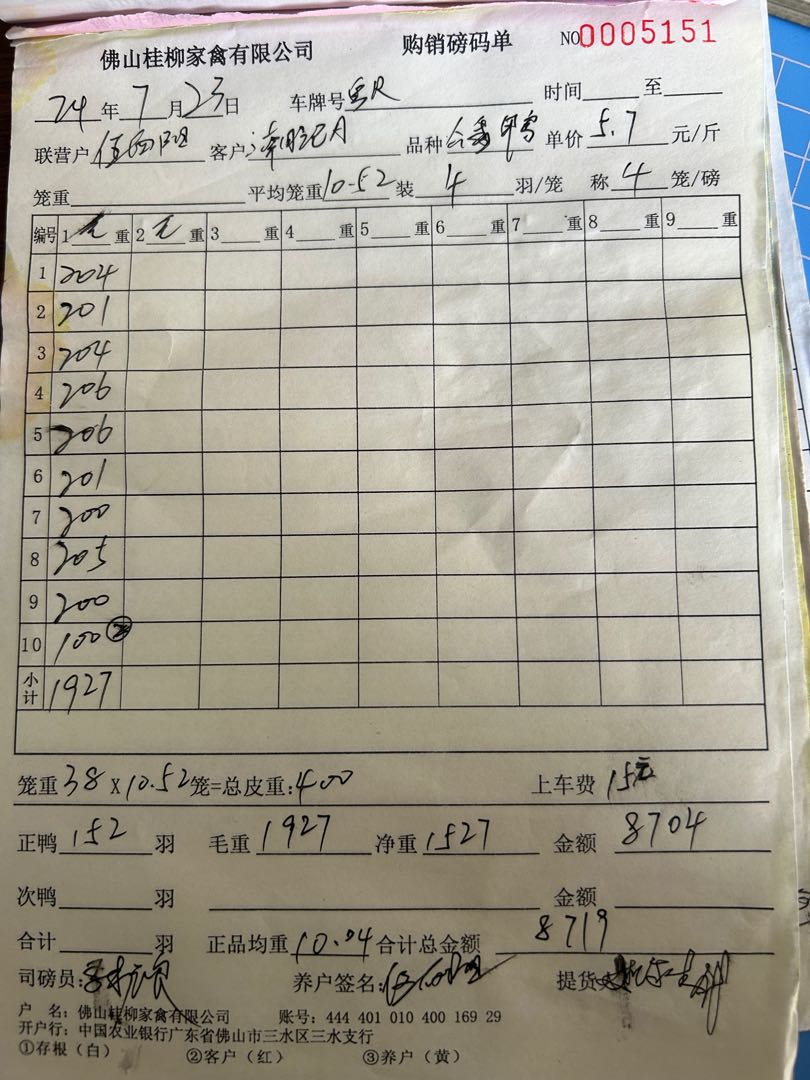 佛山桂柳家禽有限公司 购销磅码单 NO0005151
24年7月23日 车牌号 时间 至
联营户 客户 品种 单价5.7元/斤
笼重 平均笼重10.52装4羽/笼 称4笼/磅
编号 1 重 2 重 3 重 4 重 5 重 6 重 7 重 8 重 9 重
1 204
2 201
3 204
4 206
5 206
6 201
7 200
8 205
9 200
10 100 ②
小计 1927
笼重38X10.52笼=总皮重:400 上车费15元
正鸭152羽 毛重1927净重1527 金额8704
次鸭 羽 金额
合计 羽 正品均重10.04合计总金额8719
司磅员: 养户签名: 提货
户 名:佛山桂柳家禽有限公司 账号:444 401 010 400 169 29
开户行:中国农业银行广东省佛山市三水区三水支行
①存根(白) ②客户(红) ③养户(黄)